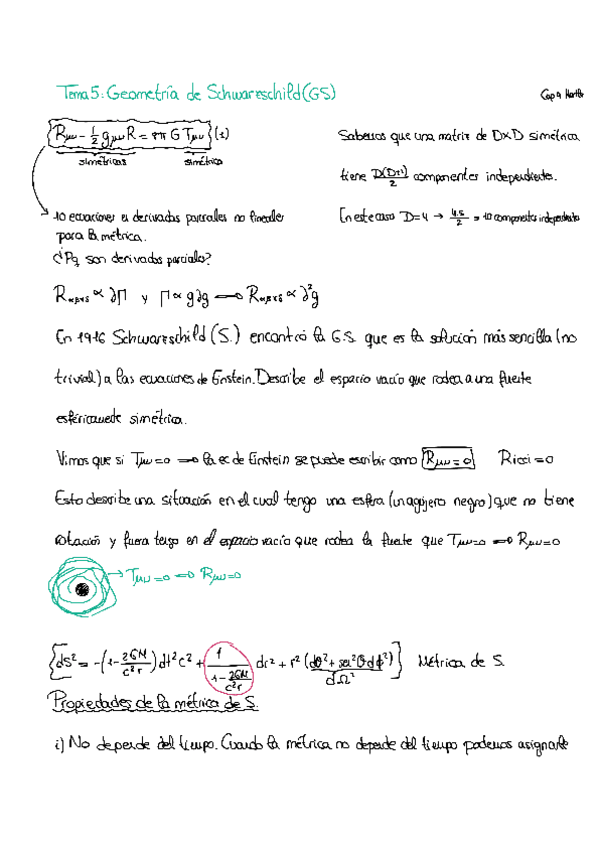 Tema 5: Geometría de Schwarzschild (GS)
Cap 9 Hartle
Rμν - 1/2 gμν R = 8π G Tμν (1)
simétricas simétrica
Sabemos que una matriz de D×D simétrica
tiene D(D+1)/2 componentes independientes.
10 ecuaciones en derivadas parciales no lineales
para la métrica.
En este caso D=4 → 4·5/2 = 10 componentes independientes
¿Pq son derivadas parciales?
Rαβγδ ∝ ∂Γ y Γ ∝ g∂g ⟹ Rαβγδ ∝ ∂²g
En 1916 Schwarzschild (S.) encontró la G.S. que es la solución más sencilla (no
trivial) a las ecuaciones de Einstein. Describe el espacio vacío que rodea a una fuente
esféricamente simétrica.
Vimos que si Tμν=0 ⟹ la ec de Einstein se puede escribir como Rμν=0 Ricci=0
Esto describe una situación en el cual tengo una esfera (un agujero negro) que no tiene
rotación y fuera tengo en el espacio vacío que rodea la fuente que Tμν=0 ⟹ Rμν=0
→ Tμν=0 ⟹ Rμν=0
ds² = -(1-2GM/c²r)dt²c² + 1/(1-2GM/c²r) dr² + r²(dθ²+sen²θdϕ²) Métrica de S.
dΩ²
Propiedades de la métrica de S.
i) No depende del tiempo. Cuando la métrica no depende del tiempo podemos asignarle